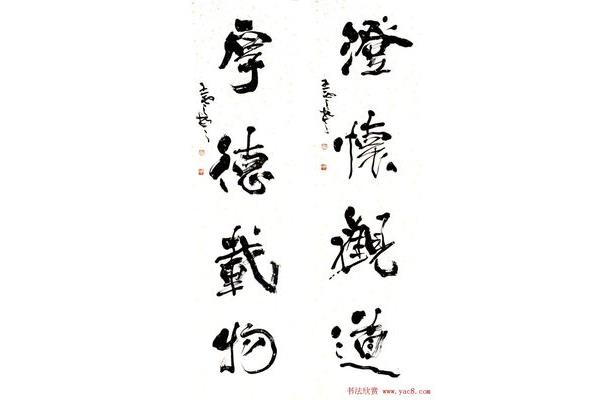 澄懷觀道
厚德載物
书法欣赏 www.yac8.com